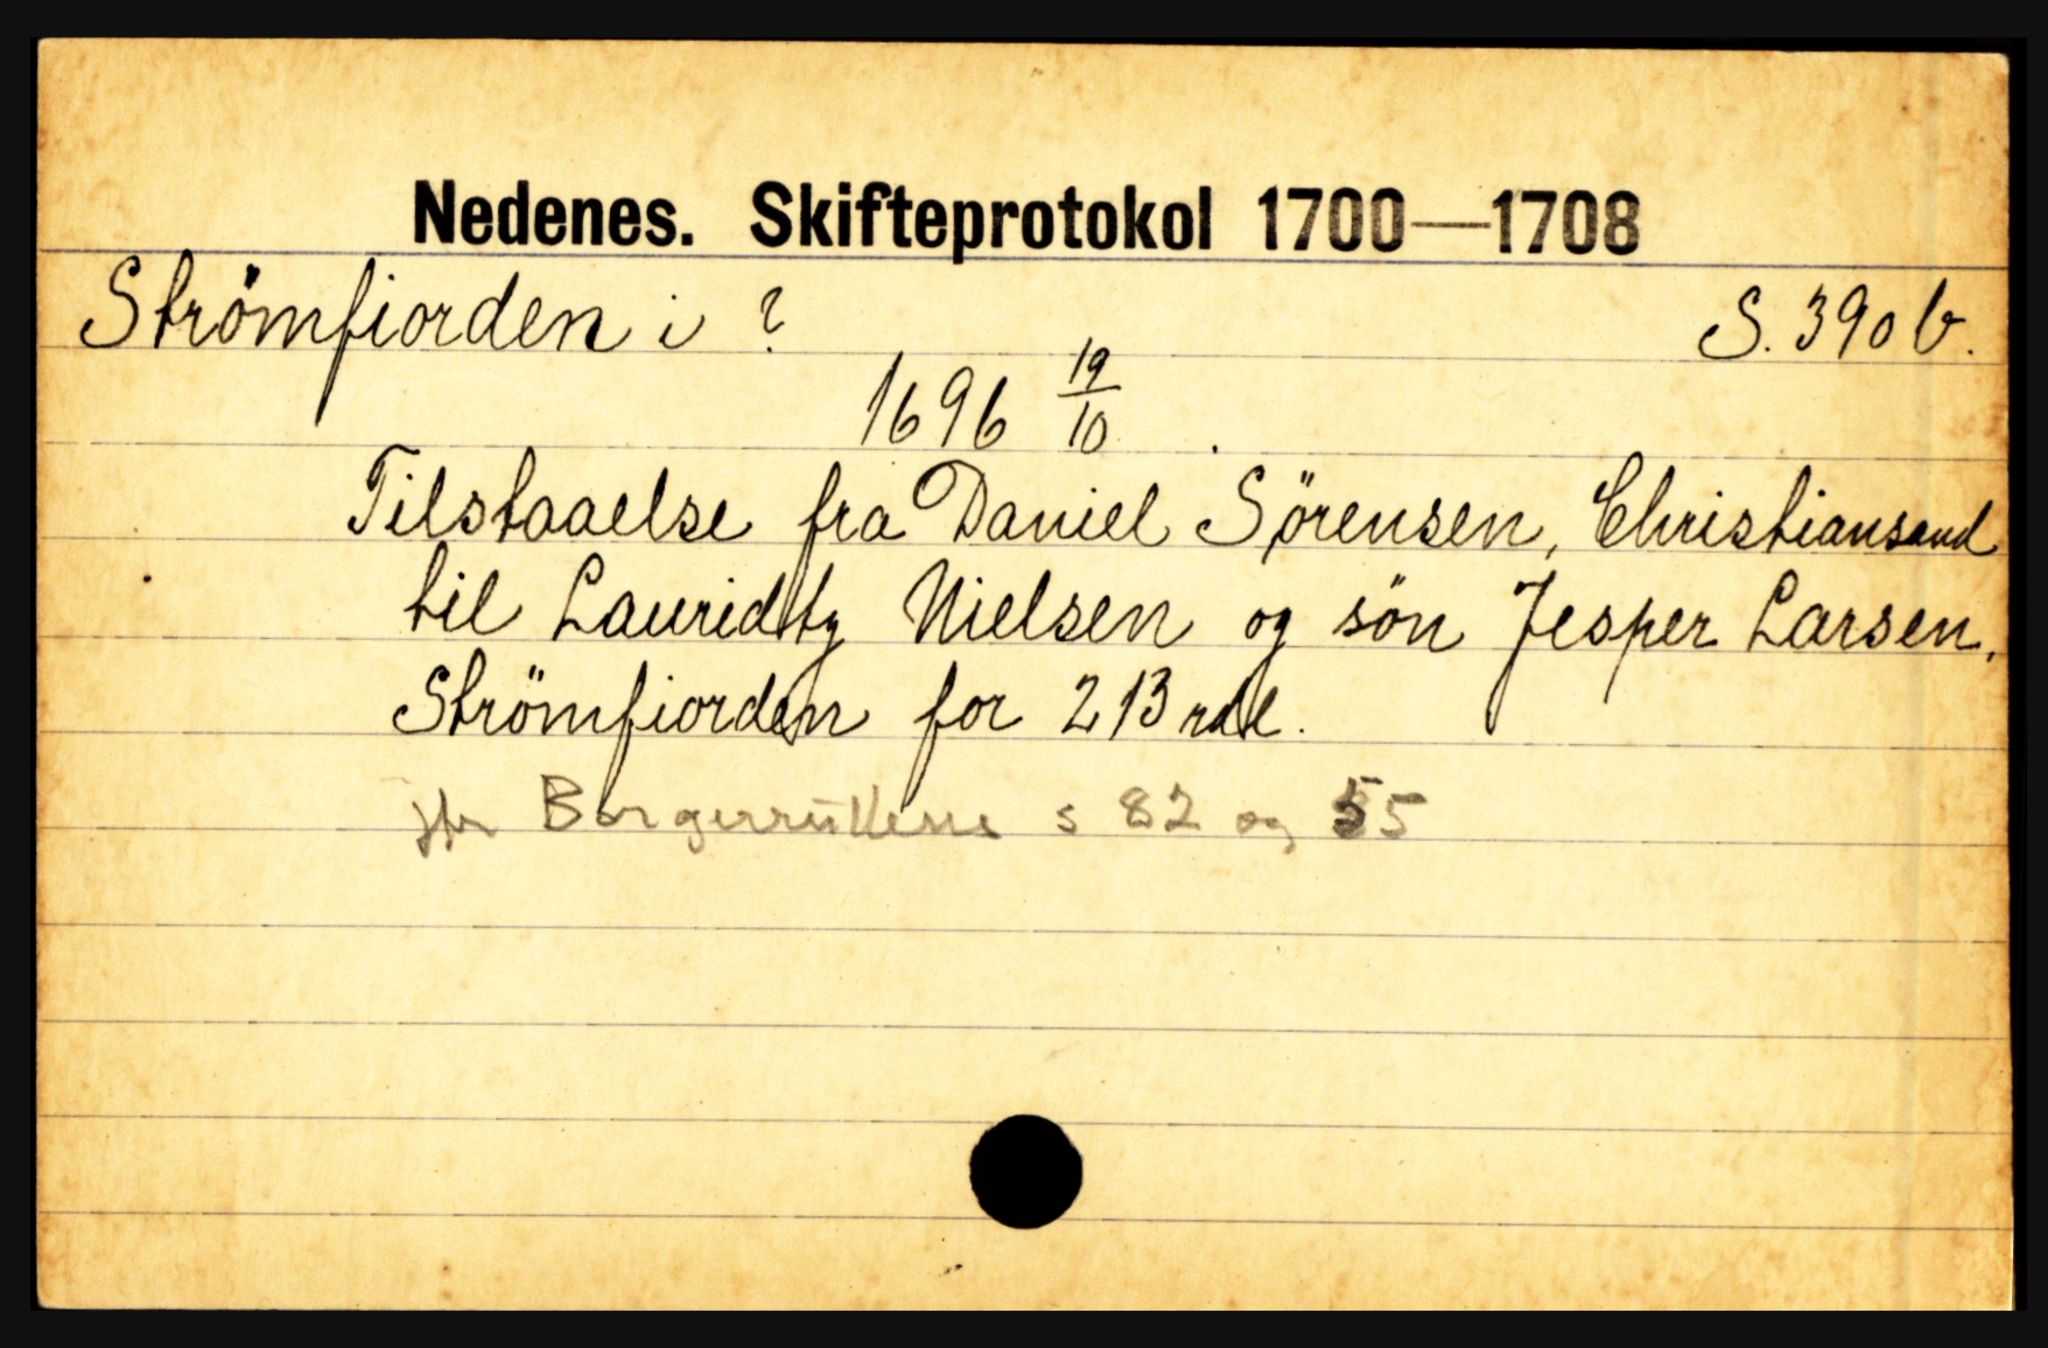 Nedenes. Skifteprotokol 1700—1708
Strömfiorden i ? S. 390 b.
1696 19/10
Tilstaaelse fra Daniel Sörensen, Christiansand
til Lauridtz Nielsen og sön Jesper Larsen,
Strömfiorden for 213 rdl.
Borgerrullene s 82 og 55